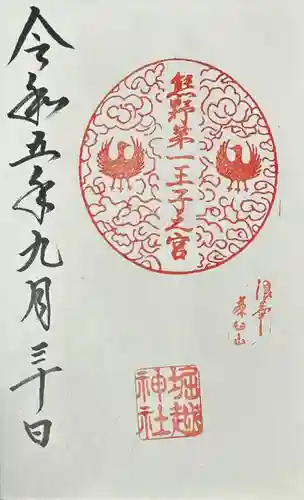 熊野第一王子之宮
浪華
茶臼山
堀越
神社
令和五年九月三十日